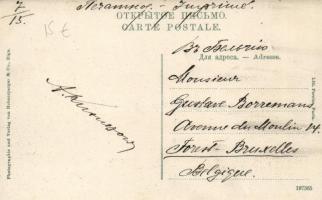 7/15
15€
Печатное - Imprimé.
ОТКРЫТОЕ ПИСЬМО.
CARTE POSTALE.
Въ Бельгію
Для адреса. — Adresse.
Monsieur
Gustave Borremans
Avenue du Moulin 14
Forest-Bruxelles
Belgique.
Photographie und Verlag von Hebensperger & Co., Riga.
187365